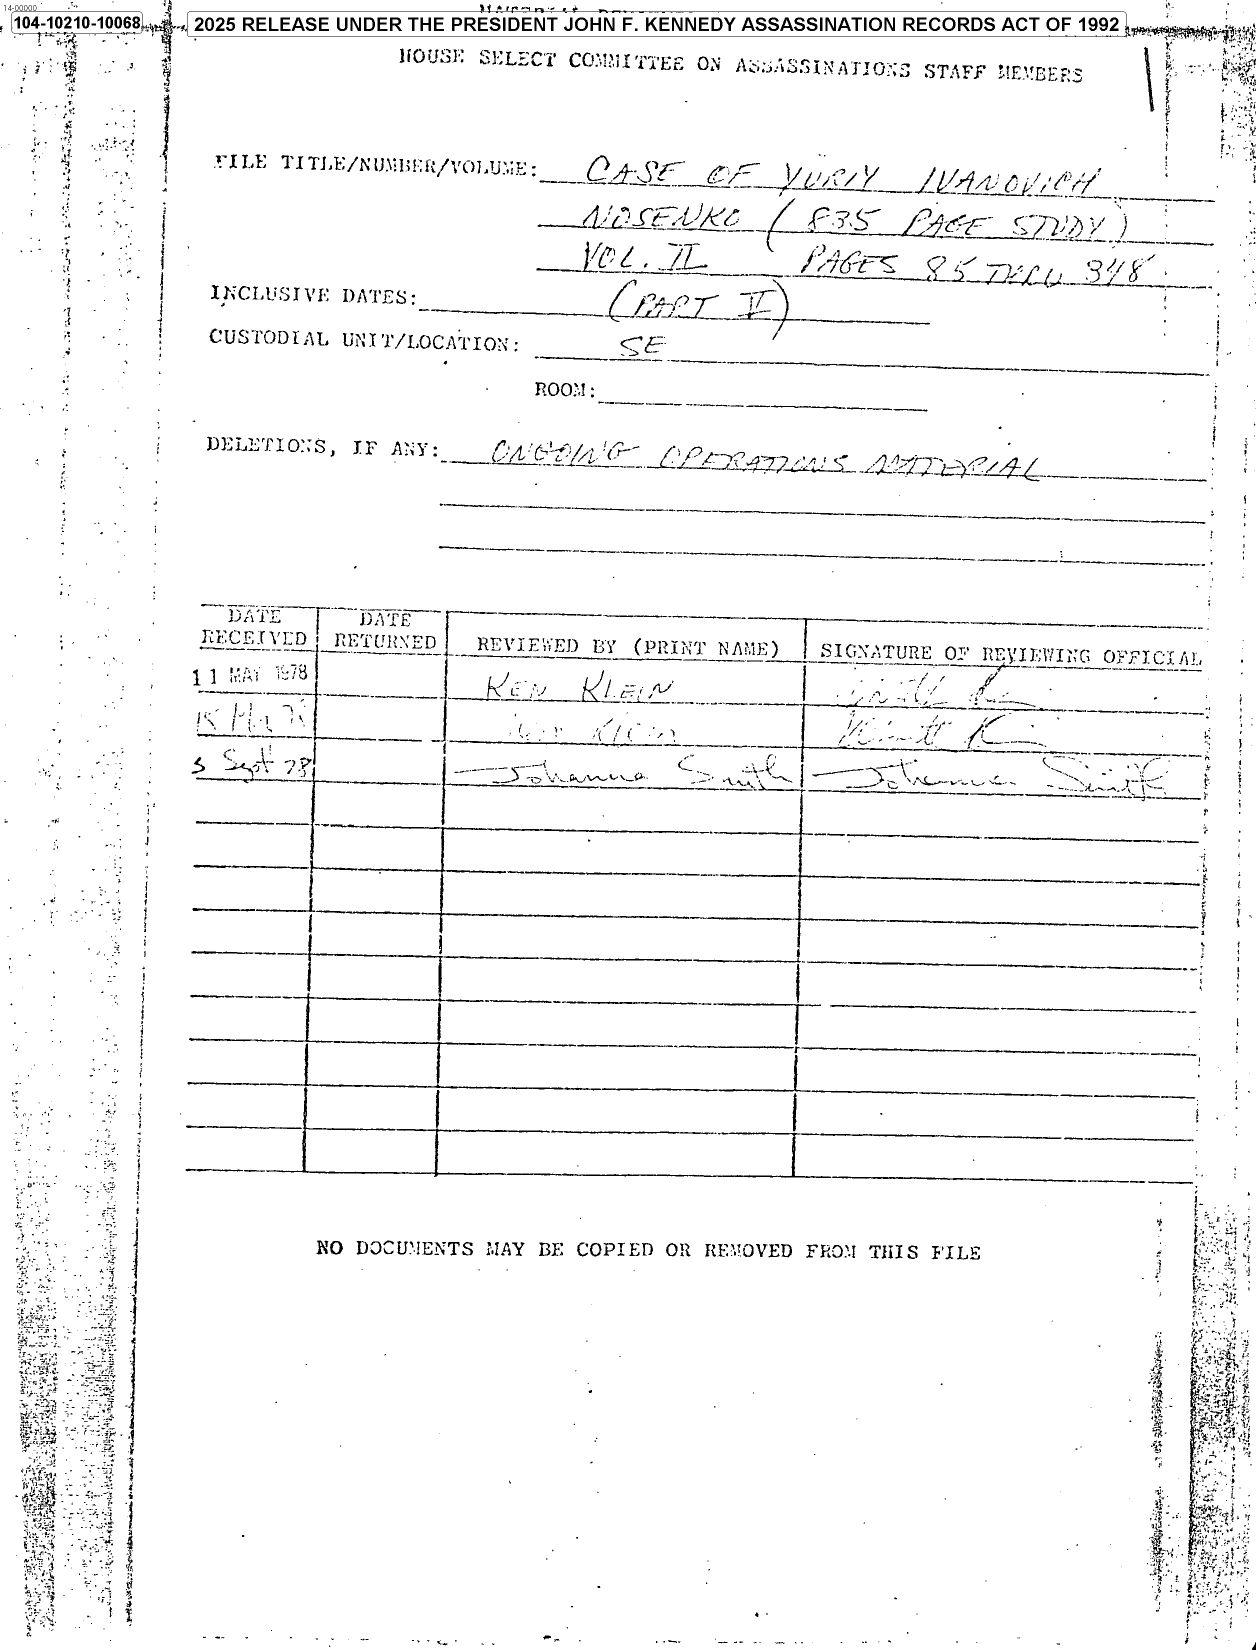 14-00000
104-10210-10068
2025 RELEASE UNDER THE PRESIDENT JOHN F. KENNEDY ASSASSINATION RECORDS ACT OF 1992
HOUSE SELECT COMMITTEE ON ASSASSINATIONS STAFF MEMBERS
FILE TITLE/NUMBER/VOLUME: CASE OF YURIY IVANOVICH
NOSENKO (835 PAGE STUDY)
VOL. II PAGES 85 THRU 348
INCLUSIVE DATES: (PART V)
CUSTODIAL UNIT/LOCATION: SE
ROOM:
DELETIONS, IF ANY: ONGOING OPERATIONS MATERIAL
DATE RECEIVED
DATE RETURNED
REVIEWED BY (PRINT NAME)
SIGNATURE OF REVIEWING OFFICIAL
11 MAY 1978 KEN KLEIN
Ken Klein
5 Sept 78 Johanna Smith Johanna Smith
NO DOCUMENTS MAY BE COPIED OR REMOVED FROM THIS FILE